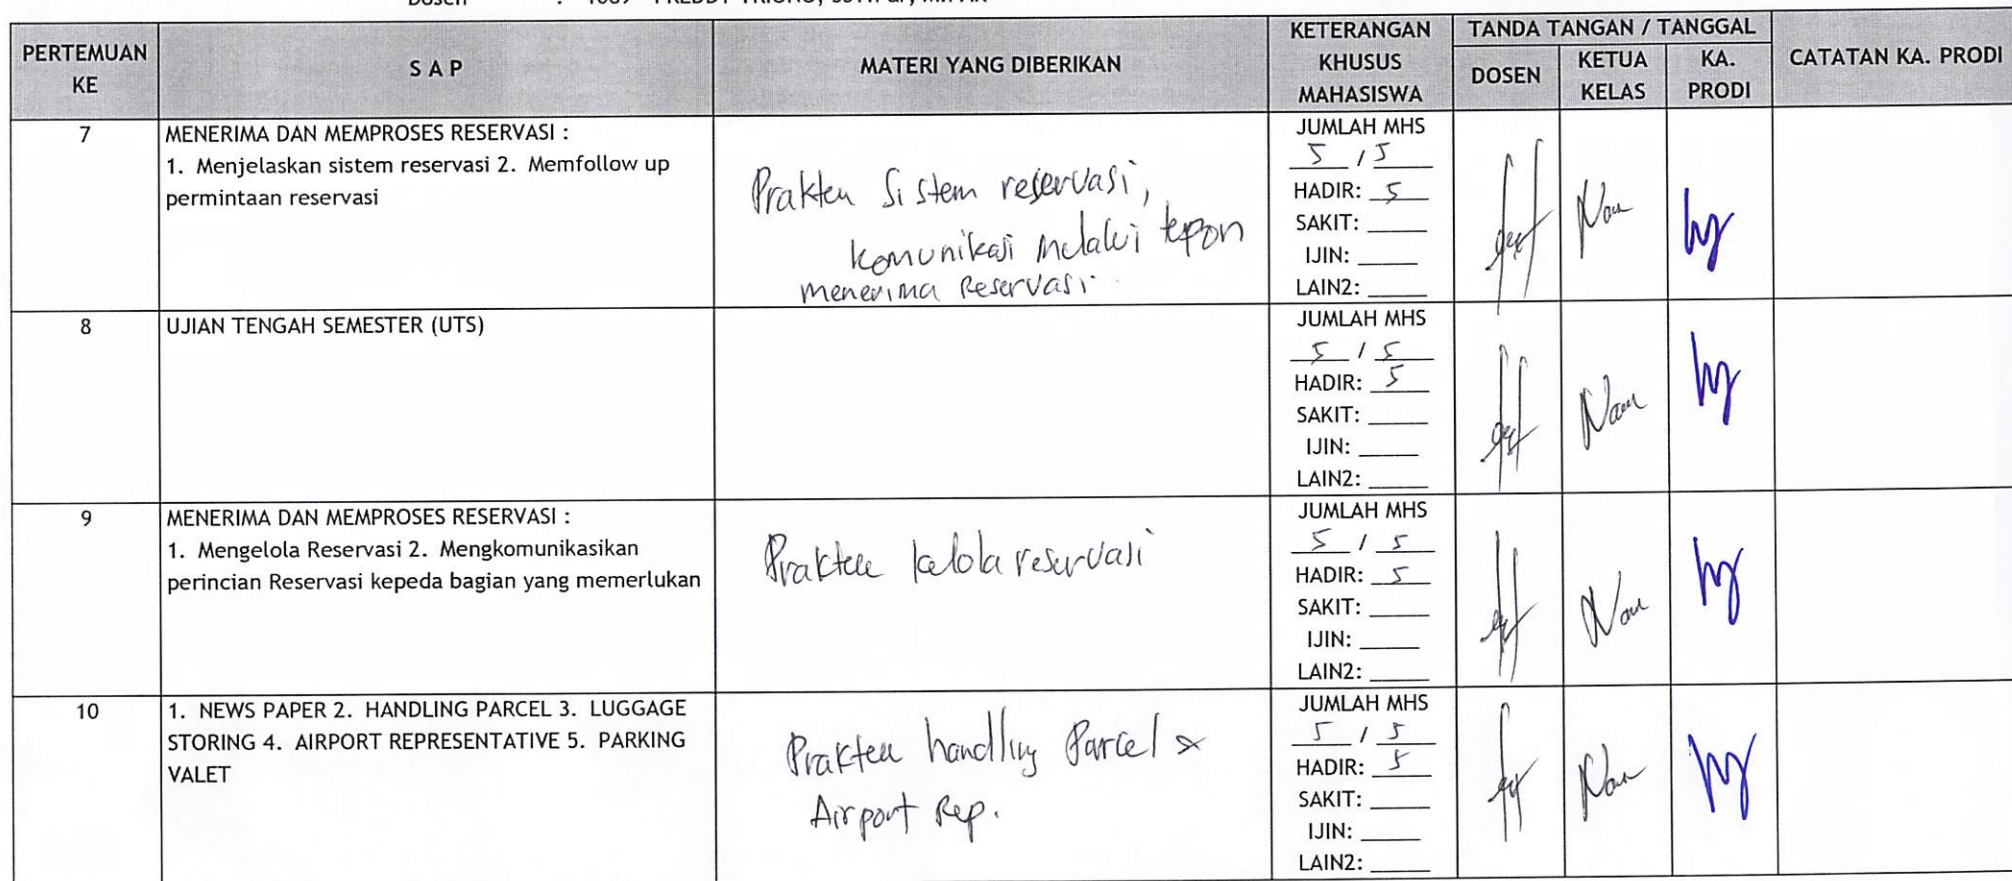 PERTEMUAN KE
S A P
MATERI YANG DIBERIKAN
KETERANGAN KHUSUS MAHASISWA
TANDA TANGAN / TANGGAL
DOSEN
KETUA KELAS
KA. PRODI
CATATAN KA. PRODI
7
MENERIMA DAN MEMPROSES RESERVASI :
1. Menjelaskan sistem reservasi 2. Memfollow up
permintaan reservasi
Praktek Sistem reservasi,
komunikasi melalui
menerima Reservasi.
JUMLAH MHS
5 / 5
HADIR: 5
SAKIT:
IJIN:
LAIN2:
8
UJIAN TENGAH SEMESTER (UTS)
JUMLAH MHS
5 / 5
HADIR: 5
SAKIT:
IJIN:
LAIN2:
9
MENERIMA DAN MEMPROSES RESERVASI :
1. Mengelola Reservasi 2. Mengkomunikasikan
perincian Reservasi kepeda bagian yang memerlukan
Praktek kelola reservasi
JUMLAH MHS
5 / 5
HADIR: 5
SAKIT:
IJIN:
LAIN2:
10
1. NEWS PAPER 2. HANDLING PARCEL 3. LUGGAGE
STORING 4. AIRPORT REPRESENTATIVE 5. PARKING
VALET
Praktek handling Parcel &
Airport Rep.
JUMLAH MHS
5 / 5
HADIR: 5
SAKIT:
IJIN:
LAIN2: